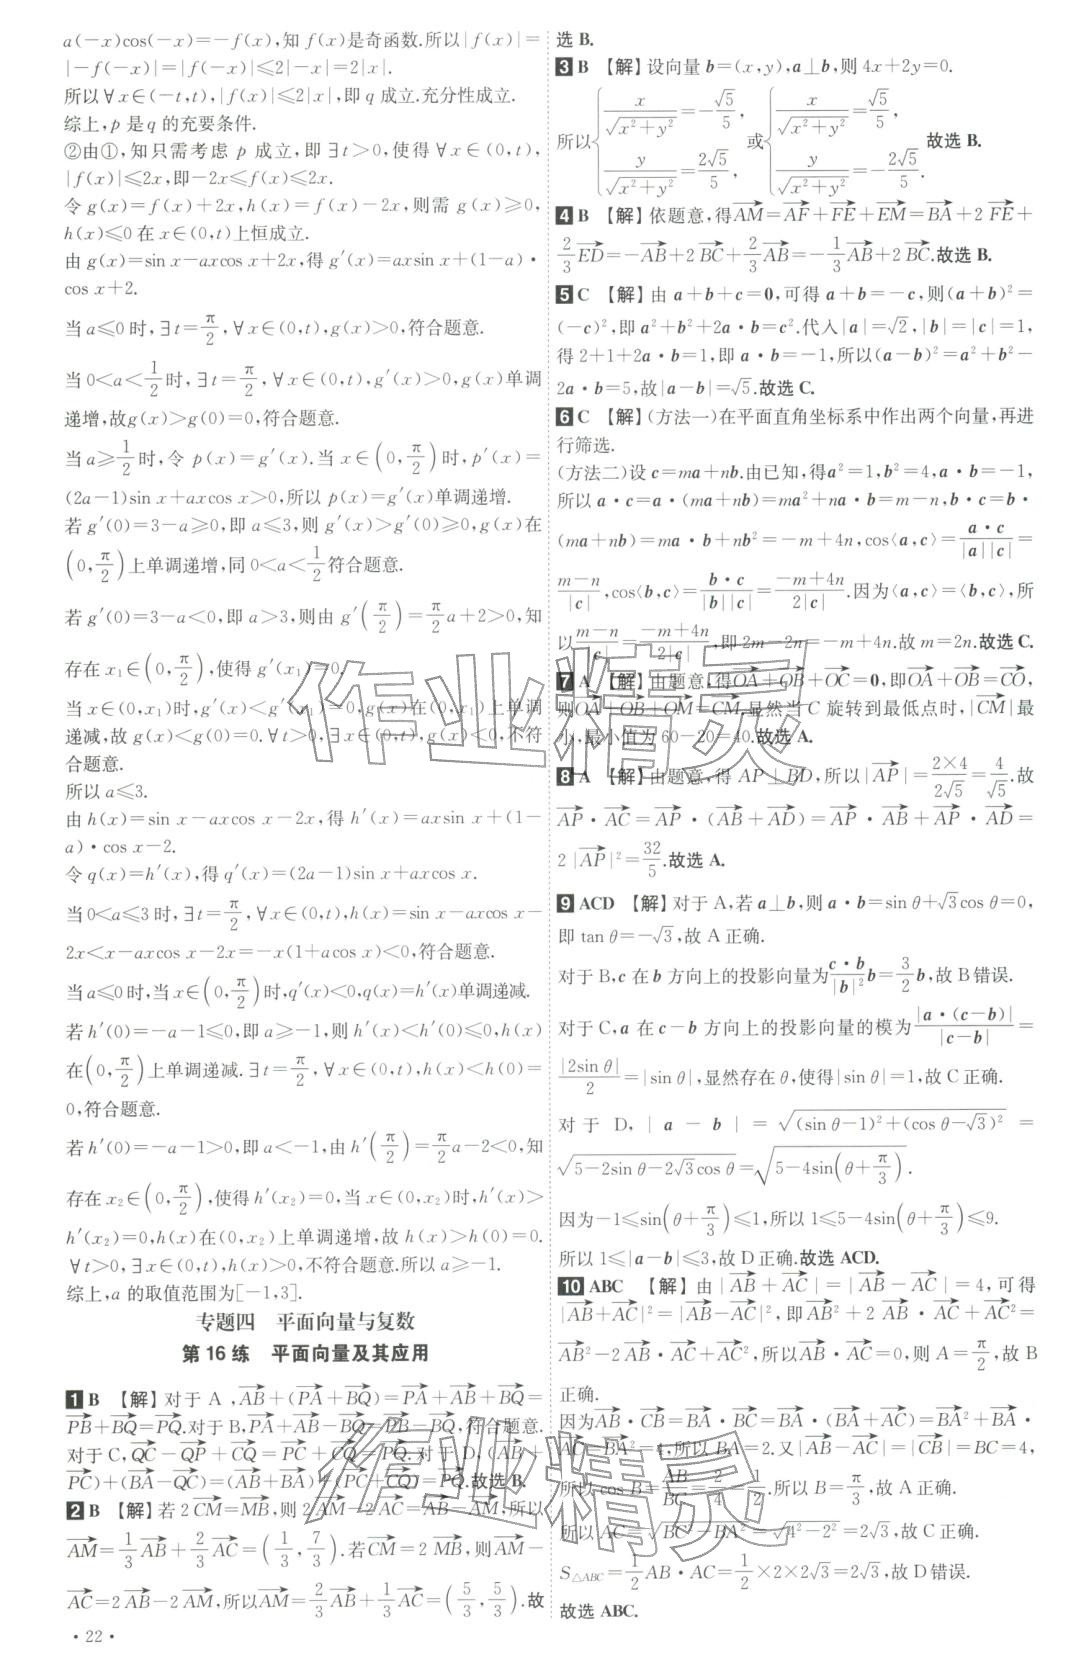 a(-x)cos(-x)=-f(x),知 f(x)是奇函数.所以|f(x)|=
|-f(-x)|=|f(-x)|⩽2|-x|=2|x|.
所以∀x∈(-t,t),|f(x)|⩽2|x|,即 q 成立.充分性成立.
综上,p 是 q 的充要条件.
②由①,知只需考虑 p 成立,即∃t>0,使得∀x∈(0,t),
|f(x)|⩽2x,即-2x⩽f(x)⩽2x.
令 g(x)=f(x)+2x,h(x)=f(x)-2x,则需 g(x)⩾0,
h(x)⩽0 在 x∈(0,t)上恒成立.
由 g(x)=sin x-axcos x+2x,得 g′(x)=axsin x+(1-a)·
cos x+2.
当 a⩽0 时,∃t=π/2,∀x∈(0,t),g(x)>0,符合题意.
当 0<a<1/2 时,∃t=π/2,∀x∈(0,t),g′(x)>0,g(x)单调
递增,故g(x)>g(0)=0,符合题意.
当 a⩾1/2 时,令 p(x)=g′(x).当 x∈(0,π/2)时,p′(x)=
(2a-1)sin x+axcos x>0,所以 p(x)=g′(x)单调递增.
若 g′(0)=3-a⩾0,即 a⩽3,则 g′(x)>g′(0)⩾0,g(x)在
(0,π/2)上单调递增,同 0<a<1/2 符合题意.
若 g′(0)=3-a<0,即 a>3,则由 g′(π/2)=π/2 a+2>0,知
存在 x₁∈(0,π/2),使得 g′(x₁)=0.
当 x∈(0,x₁)时,g′(x)<g′(x₁)=0,g(x)在(0,x₁)上单调
递减,故 g(x)<g(0)=0.∀t>0,∃x∈(0,t),g(x)<0,不符
合题意.
所以 a⩽3.
由 h(x)=sin x-axcos x-2x,得 h′(x)=axsin x+(1-
a)·cos x-2.
令 q(x)=h′(x),得 q′(x)=(2a-1)sin x+axcos x.
当 0<a⩽3 时,∃t=π/2,∀x∈(0,t),h(x)=sin x-axcos x-
2x<x-axcos x-2x=-x(1+acos x)<0,符合题意.
当 a⩽0 时,当 x∈(0,π/2)时,q′(x)<0,q(x)=h′(x)单调递减.
若 h′(0)=-a-1⩽0,即 a⩾-1,则 h′(x)<h′(0)⩽0,h(x)
在(0,π/2)上单调递减.∃t=π/2,∀x∈(0,t),h(x)<h(0)=
0,符合题意.
若 h′(0)=-a-1>0,即 a<-1,由 h′(π/2)=π/2 a-2<0,知
存在 x₂∈(0,π/2),使得 h′(x₂)=0,当 x∈(0,x₂)时,h′(x)>
h′(x₂)=0,h(x)在(0,x₂)上单调递增,故 h(x)>h(0)=0.
∀t>0,∃x∈(0,t),h(x)>0,不符合题意.所以 a⩾-1.
综上,a 的取值范围为[-1,3].
专题四 平面向量与复数
第 16 练 平面向量及其应用
1 B 【解】对于 A,AB→+(PA→+BQ→)=PA→+AB→+BQ→=
PB→+BQ→=PQ→.对于 B,PA→+AB→-BQ→=PB→-BQ→,符合题意.
对于 C,QC→-QP→+CQ→=PC→+CQ→=PQ→.对于 D,(AB→+
PC→)+(BA→-QC→)=(AB→+BA→)+(PC→+CQ→)=PQ→.故选 B.
2 B 【解】若 2CM→=MB→,则 2AM→-2AC→=AB→-AM→,所以
AM→=1/3 AB→+2/3 AC→=(1/3,7/3).若CM→=2MB→,则AM→-
AC→=2AB→-2AM→,所以AM→=2/3 AB→+1/3 AC→=(5/3,5/3).故
· 22 ·
选 B.
3 B 【解】设向量 b=(x,y),a⊥b,则 4x+2y=0.
所以{x/√(x²+y²)=-√5/5, y/√(x²+y²)=2√5/5, 或{x/√(x²+y²)=√5/5, y/√(x²+y²)=-2√5/5. 故选 B.
4 B 【解】依题意,得AM→=AF→+FE→+EM→=BA→+2FE→+
2/3 ED→=-AB→+2BC→+2/3 AB→=-1/3 AB→+2BC→.故选 B.
5 C 【解】由 a+b+c=0,可得 a+b=-c,则(a+b)²=
(-c)²,即 a²+b²+2a·b=c².代入|a|=√2,|b|=|c|=1,
得 2+1+2a·b=1,即 a·b=-1,所以(a-b)²=a²+b²-
2a·b=5,故|a-b|=√5.故选 C.
6 C 【解】(方法一)在平面直角坐标系中作出两个向量,再进
行筛选.
(方法二)设 c=ma+nb.由已知,得a²=1,b²=4,a·b=-1,
所以 a·c=a·(ma+nb)=ma²+na·b=m-n,b·c=b·
(ma+nb)=ma·b+nb²=-m+4n,cos⟨a,c⟩=a·c/|a||c|=
m-n/|c|,cos⟨b,c⟩=b·c/|b||c|=-m+4n/2|c|.因为⟨a,c⟩=⟨b,c⟩,所
以m-n/|c|=-m+4n/2|c|,即 2m-2n=-m+4n.故 m=2n.故选 C.
7 A 【解】由题意,得OA→+OB→+OC→=0,即OA→+OB→=CO→,
则OA→+OB→+OM→=CM→.显然当 C 旋转到最低点时,|CM→|最
小,最小值为 60-20=40.故选 A.
8 A 【解】由题意,得 AP⊥BD,所以|AP→|=2×4/2√5=4/√5.故
AP→·AC→=AP→·(AB→+AD→)=AP→·AB→+AP→·AD→=
2|AP→|²=32/5.故选 A.
9 ACD 【解】对于 A,若 a⊥b,则 a·b=sin θ+√3cos θ=0,
即 tan θ=-√3,故 A 正确.
对于 B,c 在 b 方向上的投影向量为c·b/|b|² b=3/2 b,故 B 错误.
对于 C,a 在 c-b 方向上的投影向量的模为|a·(c-b)|/|c-b|=
|2sin θ|/2=|sin θ|,显然存在 θ,使得|sin θ|=1,故 C 正确.
对于 D,|a-b|=√((sin θ-1)²+(cos θ-√3)²)=
√(5-2sin θ-2√3cos θ)=√(5-4sin(θ+π/3)).
因为-1⩽sin(θ+π/3)⩽1,所以 1⩽5-4sin(θ+π/3)⩽9.
所以 1⩽|a-b|⩽3,故 D 正确.故选 ACD.
10 ABC 【解】由|AB→+AC→|=|AB→-AC→|=4,可得
|AB→+AC→|²=|AB→-AC→|²,即AB→²+2AB→·AC→+AC→²=
AB→²-2AB→·AC→+AC→²,所以AB→·AC→=0,则 A=π/2,故 B
正确.
因为AB→·CB→=BA→·BC→=BA→·(BA→+AC→)=BA→²+BA→·
AC→=BA→²=4,所以 BA=2.又|AB→-AC→|=|CB→|=BC=4,
所以cos B=AB/BC=2/4=1/2.所以 B=π/3,故 A 正确.
所以 AC=√(BC²-BA²)=√(4²-2²)=2√3,故 C 正确.
S△ABC=1/2 AB·AC=1/2×2×2√3=2√3,故 D 错误.
故选 ABC.
作业精灵
作业精灵